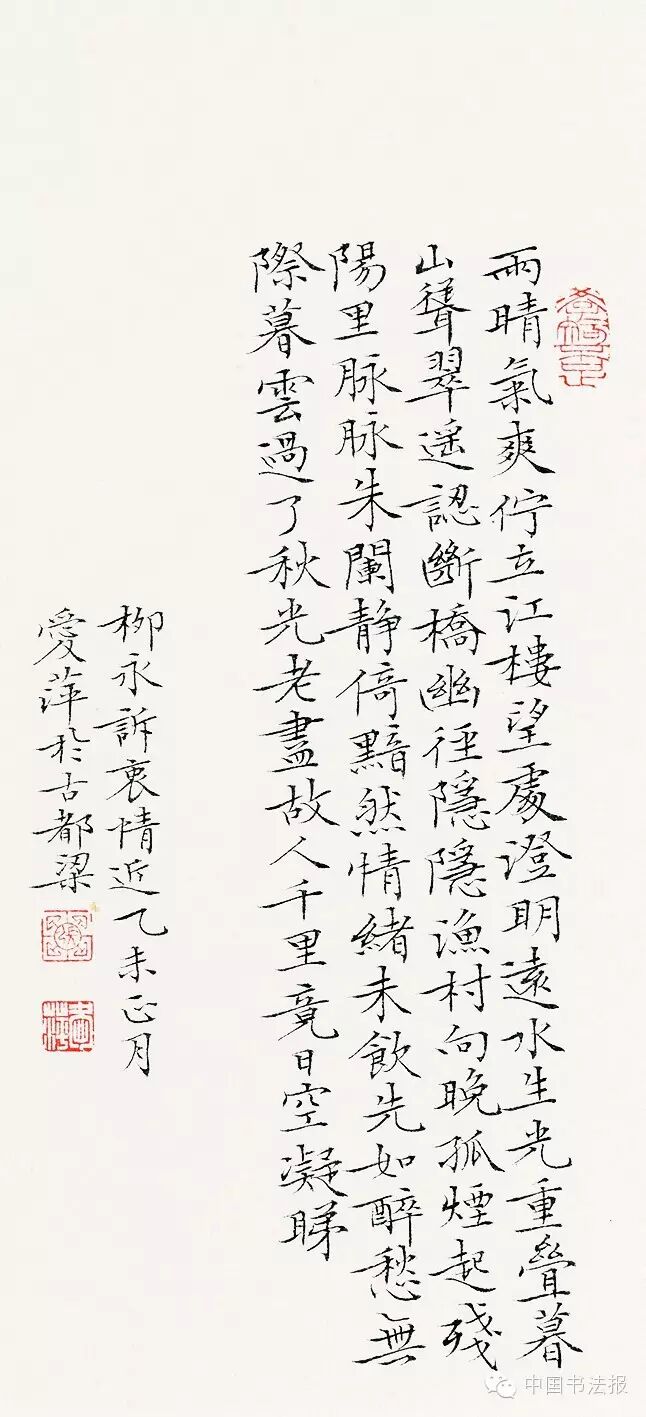 雨晴氣爽佇立江樓望處澄明遠水生光重疊暮
山聳翠遥認斷橋幽徑隱隱漁村向晚孤煙起殘
陽里脉脉朱闌静倚黯然情緒未飲先如醉愁無
際暮雲過了秋光老盡故人千里竟日空凝睇
柳永訴衷情近乙未正月
愛萍於古都梁
中国书法报